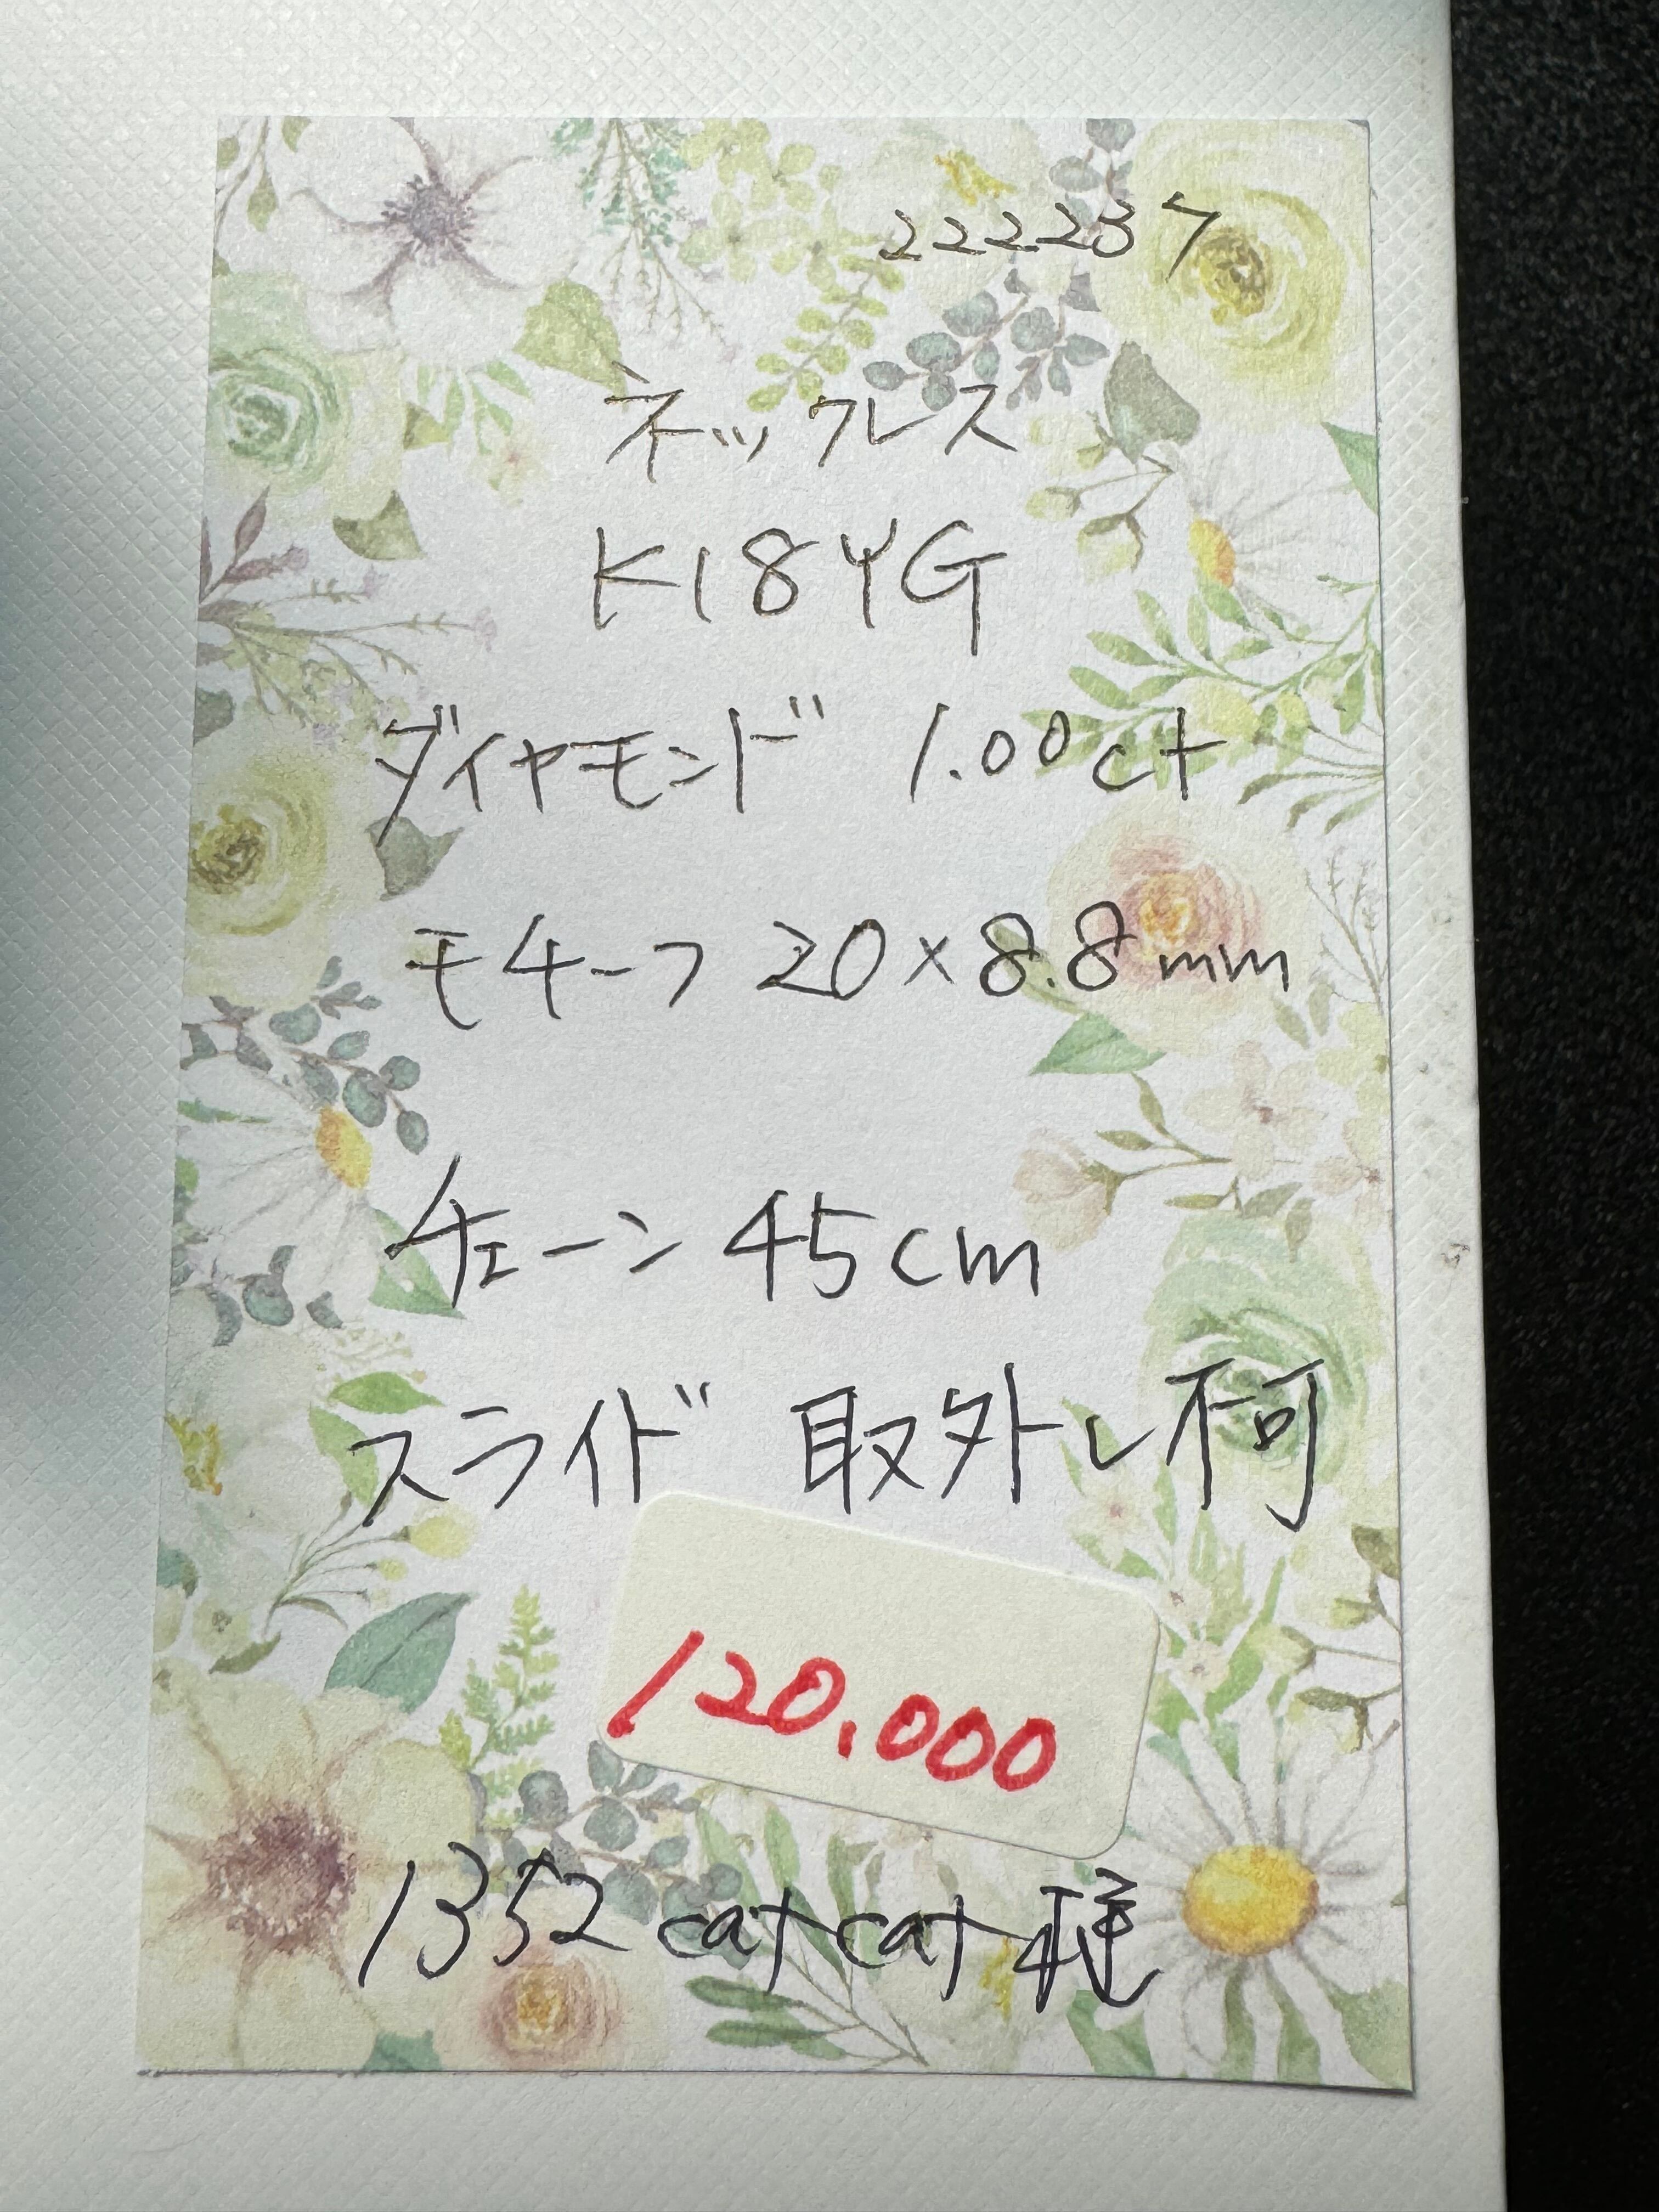 222237
ネックレス
K18YG
ダイヤモンド 1.00ct
モチーフ 20×8.8mm
チェーン 45cm
スライド 取外し不可
120.000
1352 catcat様